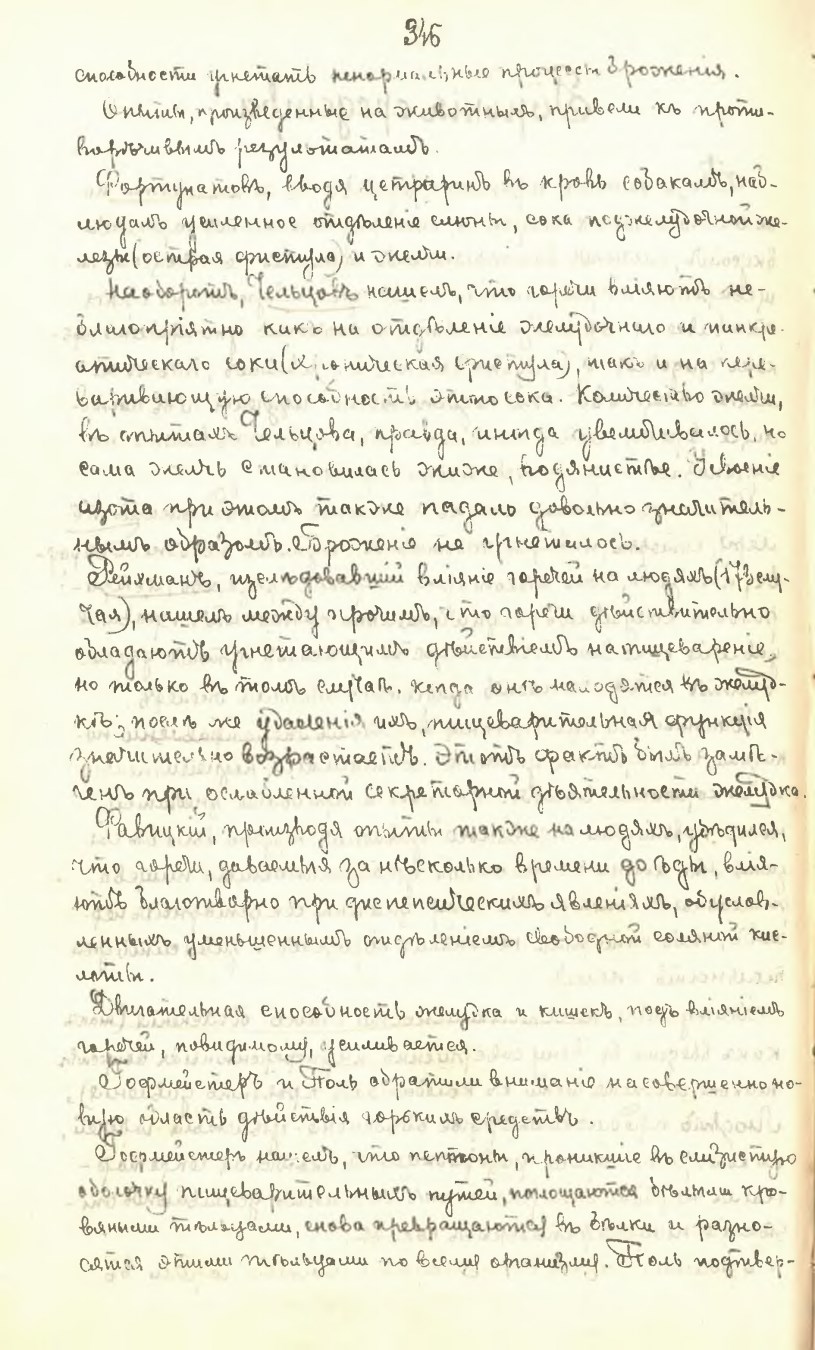 346
способности угнетать ненормальные процессы броженія.
Опыты, произведенные на животныхъ, привели къ проти-
ворѣчивымъ результатамъ.
Фортунатовъ, вводя цетраринъ въ кровь собакамъ, наб-
людалъ усиленное отдѣленіе слюны, сока поджелудочной же-
лезы (острая фистула) и желчи.
Наоборотъ, Чельцовъ нашелъ, что горечи вліяютъ не-
благопріятно какъ на отдѣленіе желудочнаго и панкре-
атическаго сока (хроническая фистула), такъ и на пере-
варивающую способность этого сока. Количество желчи,
въ опытахъ Чельцова, правда, иногда увеличивалось, но
сама желчь становилась жиже, водянистѣе. Усвоеніе
азота при этомъ также падало довольно значитель-
нымъ образомъ. Броженіе не угнеталось.
Рейхманъ, изслѣдовавшій вліяніе горечей на людяхъ (17 слу-
чая), нашелъ между прочимъ, что горечи дѣйствительно
обладаютъ угнетающимъ дѣйствіемъ на пищевареніе,
но только въ томъ случаѣ, когда онѣ находятся въ желуд-
кѣ; послѣ же удаленія ихъ, пищеварительная функція
значительно возрастаетъ. Этотъ фактъ былъ замѣ-
ченъ при ослабленной секреторной дѣятельности желудка.
Равицкій, производя опыты также на людяхъ, убѣдился,
что горечи, даваемыя за нѣсколько времени до ѣды, влія-
ютъ благотворно при диспепсическихъ явленіяхъ, обуслов-
ленныхъ уменьшеннымъ отдѣленіемъ свободной соляной кис-
лоты.
Двигательная способность желудка и кишекъ, подъ вліяніемъ
горечей, повидимому, усиливается.
Гофмейстеръ и Поль обратили вниманіе на совершенно но-
вую область дѣйствія горькихъ средствъ.
Гофмейстеръ нашелъ, что пептоны, проникшіе въ слизистую
оболочку пищеварительныхъ путей, поглощаются бѣлыми кро-
вяными тѣльцами, снова превращаются въ бѣлки и разно-
сятся этими тѣльцами по всему организму. Поль подтвер-